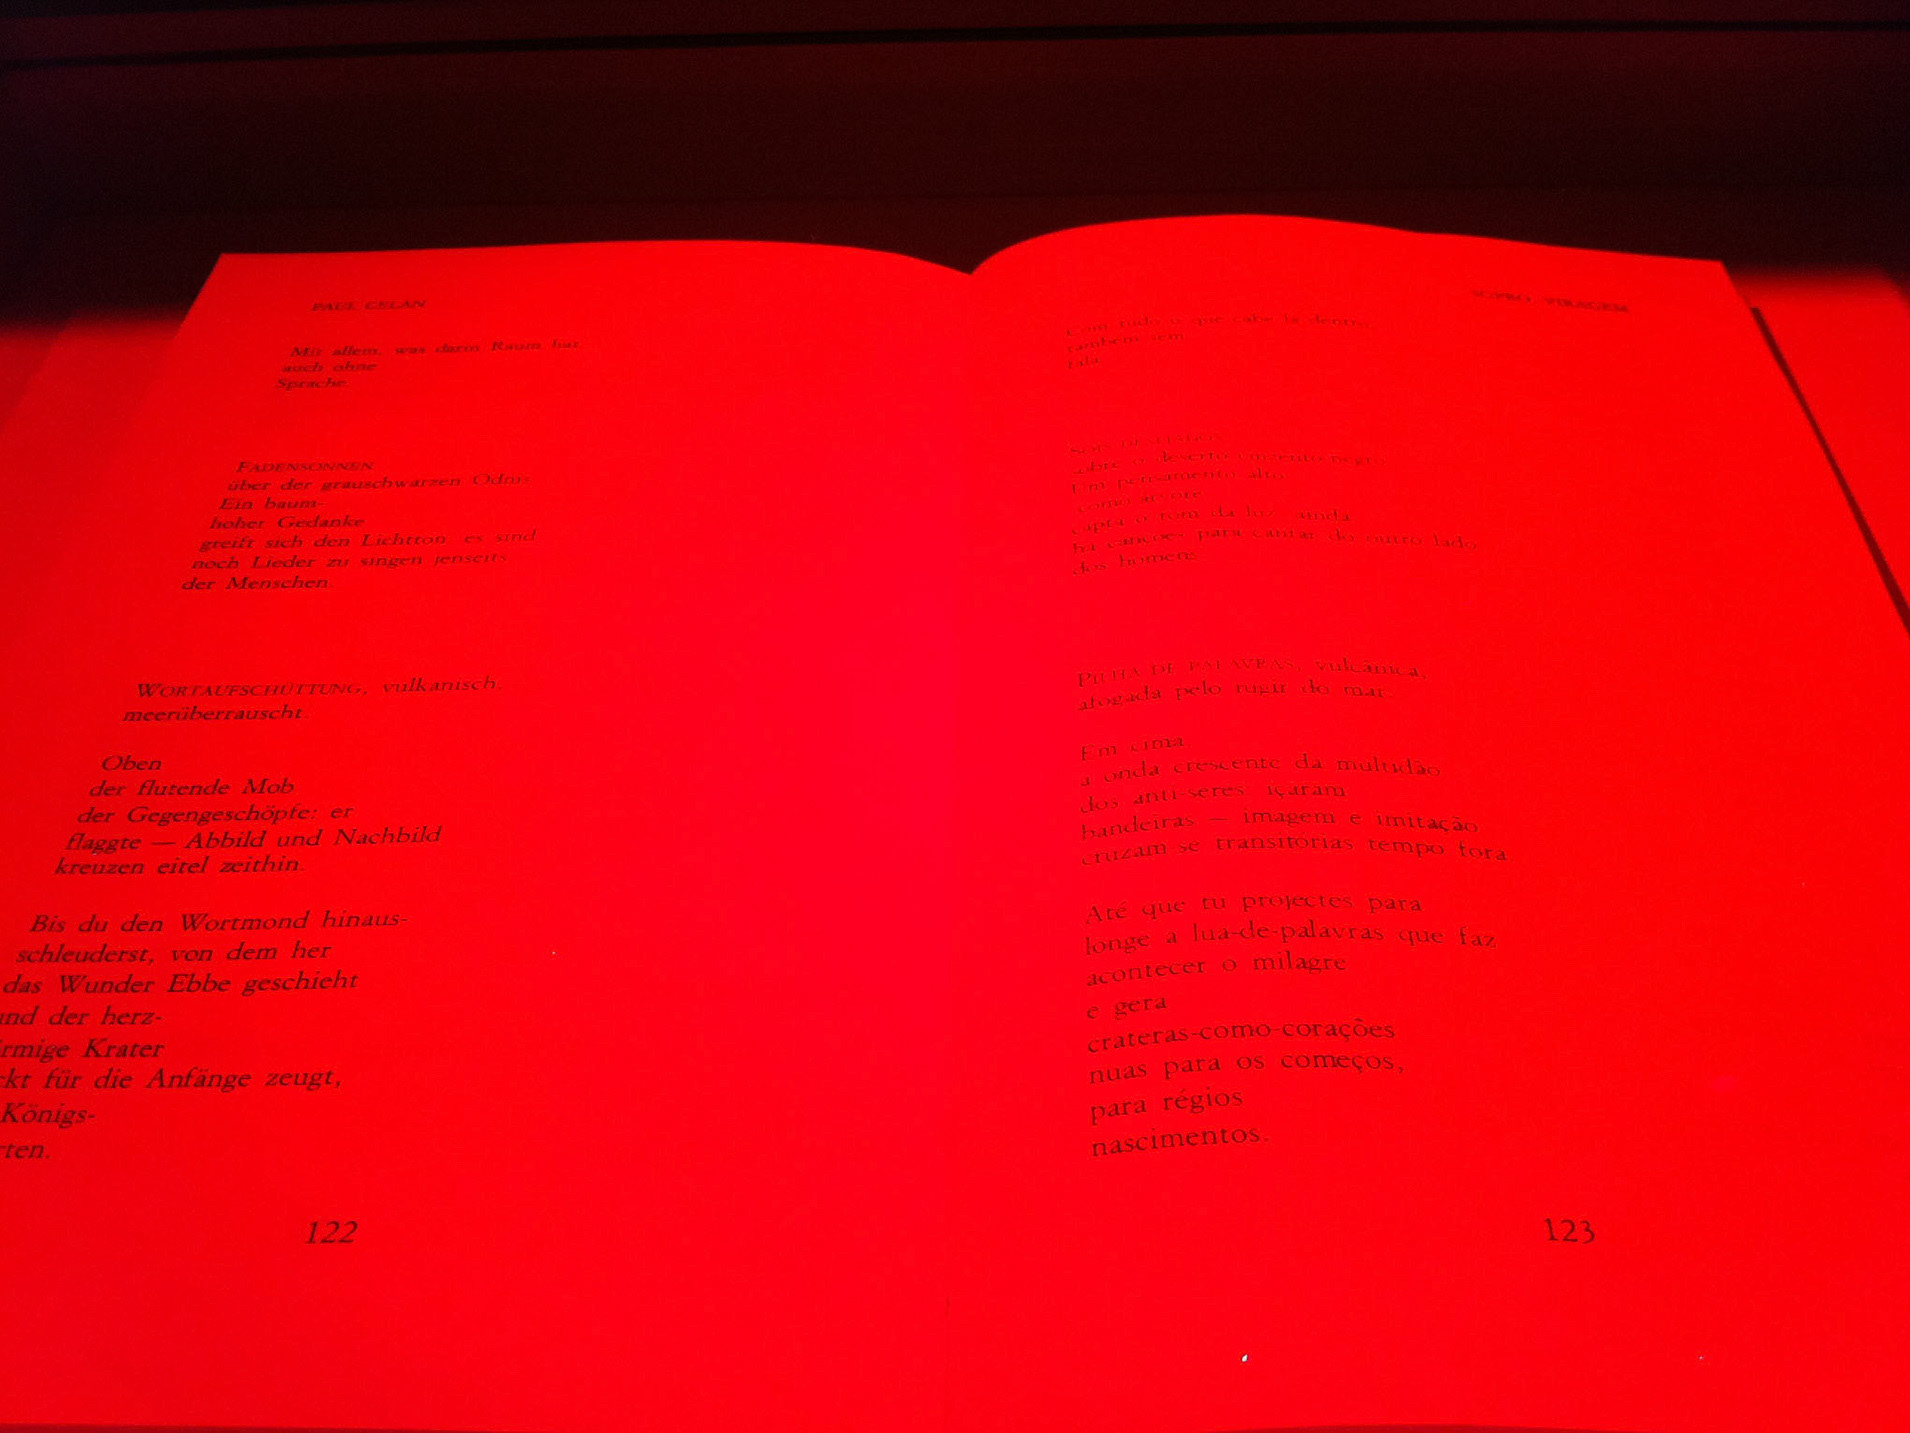 PAUL CELAN
Mit allem, was darin Raum hat,
auch ohne
Sprache.
FADENSONNEN
über der grauschwarzen Ödnis.
Ein baum-
hoher Gedanke
greift sich den Lichtton: es sind
noch Lieder zu singen jenseits
der Menschen.
WORTAUFSCHÜTTUNG, vulkanisch,
meerüberrauscht.
Oben
der flutende Mob
der Gegengeschöpfe: er
flaggte — Abbild und Nachbild
kreuzen eitel zeithin.
Bis du den Wortmond hinaus-
schleuderst, von dem her
das Wunder Ebbe geschieht
und der herz-
rmige Krater
ckt für die Anfänge zeugt,
Königs-
rten.
122
SOPRO, VIRAGEM
Com tudo o que cabe lá dentro,
também sem
fala.
sobre o deserto cinzento-negro.
Um pensamento alto
como árvore
capta o tom da luz: ainda
há canções para cantar do outro lado
dos homens.
PILHA DE PALAVRAS, vulcânica,
afogada pelo rugir do mar.
Em cima,
a onda crescente da multidão
dos anti-seres: içaram
bandeiras — imagem e imitação
cruzam-se transitórias tempo fora.
Até que tu projectes para
longe a lua-de-palavras que faz
acontecer o milagre
e gera
crateras-como-corações
nuas para os começos,
para régios
nascimentos.
123